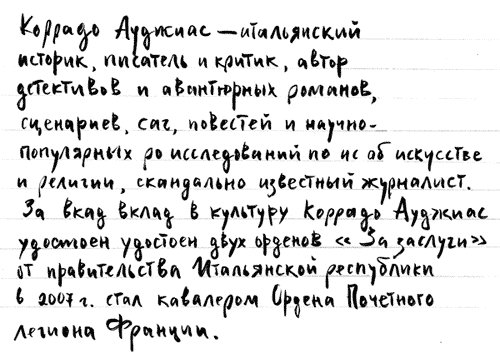 Коррадо Ауджиас — итальянский
историк, писатель и критик, автор
детективов и авантюрных романов,
сценариев, саг, повестей и научно-
популярных ро исследований по ис об искусстве
и религии, скандально известный журналист.
За вкад вклад в культуру Коррадо Ауджиас
удостоен удостоен двух орденов «За заслуги»
от правительства Итальянской республики
в 2007 г. стал кавалером Ордена Почетного
легиона Франции.